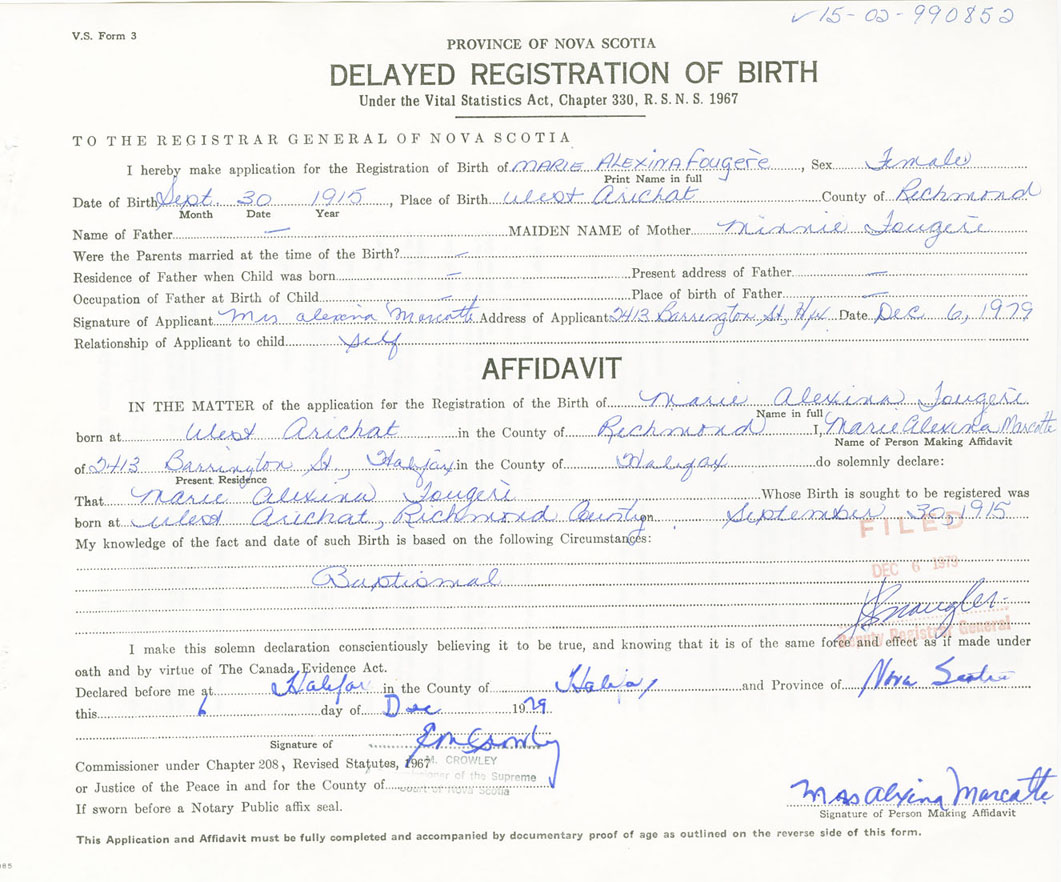 ✓15-02-990852
V.S. Form 3
PROVINCE OF NOVA SCOTIA
DELAYED REGISTRATION OF BIRTH
Under the Vital Statistics Act, Chapter 330, R. S. N. S. 1967
TO THE REGISTRAR GENERAL OF NOVA SCOTIA
I hereby make application for the Registration of Birth of MARIE ALEXINA Fougère, Sex Female
Print Name in full
Date of Birth Sept 30 1915, Place of Birth West Arichat County of Richmond
Month Date Year
Name of Father — MAIDEN NAME of Mother Minnie Fougère
Were the Parents married at the time of the Birth? —
Residence of Father when Child was born — Present address of Father —
Occupation of Father at Birth of Child — Place of birth of Father —
Signature of Applicant Mrs Alexina Marcatte Address of Applicant 2413 Barrington St, Hfx Date Dec 6, 1979
Relationship of Applicant to child Self
AFFIDAVIT
IN THE MATTER of the application for the Registration of the Birth of Marie Alexina Fougère
Name in full
born at West Arichat in the County of Richmond I, Marie Alexina Marcatte
Name of Person Making Affidavit
of 2413 Barrington St, Halifax in the County of Halifax do solemnly declare:
Present Residence
That Marie Alexina Fougère Whose Birth is sought to be registered was
born at West Arichat, Richmond County on September 30, 1915
My knowledge of the fact and date of such Birth is based on the following Circumstances:
FILED
DEC 6 1979
Baptismal
Deputy Registrar General
I make this solemn declaration conscientiously believing it to be true, and knowing that it is of the same force and effect as if made under
oath and by virtue of The Canada Evidence Act.
Declared before me at Halifax in the County of Halifax and Province of Nova Scotia
this 6 day of Dec 1979
Signature of
Commissioner under Chapter 208, Revised Statutes, 1967
M. CROWLEY
of the Supreme
Court of Nova Scotia
or Justice of the Peace in and for the County of
If sworn before a Notary Public affix seal.
Mrs Alexina Marcatte
Signature of Person Making Affidavit
This Application and Affidavit must be fully completed and accompanied by documentary proof of age as outlined on the reverse side of this form.